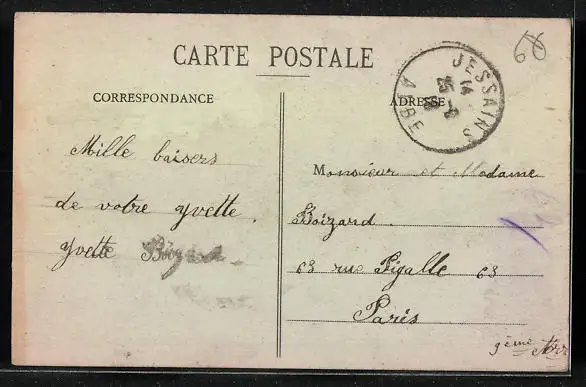 CARTE POSTALE
68
JESSAINS
14
25-8
AUBE
CORRESPONDANCE
ADRESSE
Mille baisers
de votre yvette.
Yvette
Monsieur et Madame
Boizard.
63 rue Pigalle 63
Paris
9ème Arr